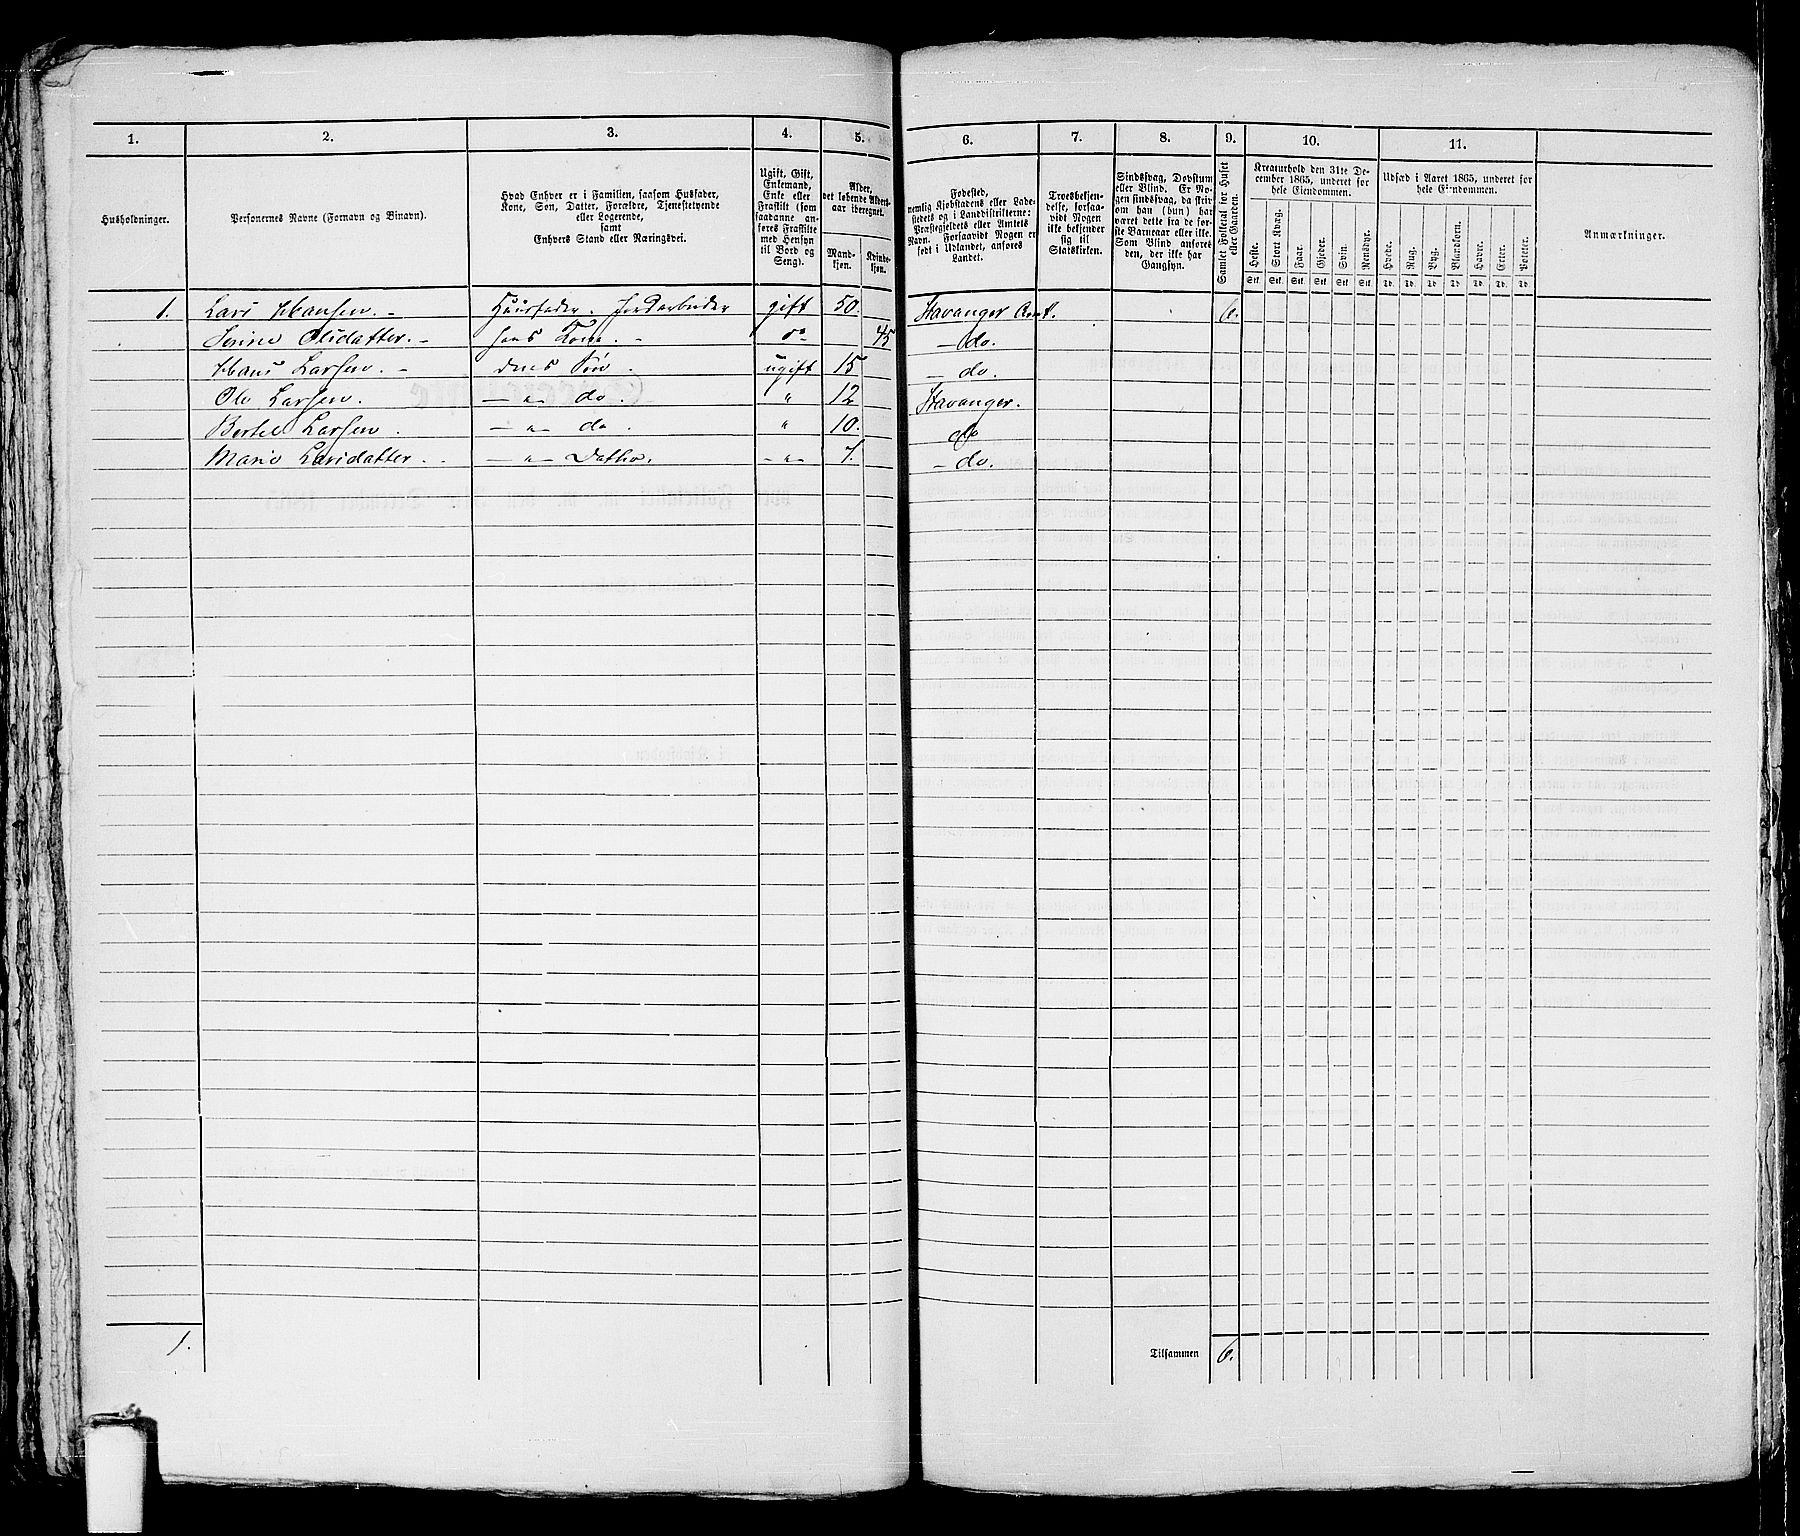 1. 2. 3. 4. 5. 6. 7. 8. 9. 10. 11.
Husholdninger.
Personernes Navne (Fornavn og Binavn).
Hvad Enhver er i Familien, saasom Husfader,
Kone, Søn, Datter, Forældre, Tjenestetyende
eller Logerende,
samt
Enhvers Stand eller Næringsvei.
Ugift, Gift,
Enkemand,
Enke eller
Fraskilt (som
saadanne an-
føres Fraskilte
med Hensyn
til Bord og
Seng).
Alder,
det løbende Alders-
aar iberegnet.
Mand-
kjøn.
Kvinde-
kjøn.
Fødested,
nemlig Kjøbstadens eller Lade-
stedets og i Landdistrikterne:
Præstegjeldets eller Amtets
Navn. Forsaavidt Nogen er
født i Udlandet, anføres
Landet.
Troesbekjen-
delse, forsaa-
vidt Nogen
ikke bekjender
sig til
Statskirken.
Sindssvag, Døvstum
eller Blind. Er No-
gen sindssvag, da skriv
om han (hun) har
været dette fra de før-
ste Barneaar eller ikke.
Som Blind anføres
den, der ikke har
Gangsyn.
Samlet Folketal for Huset
eller Gaarden.
Kreaturhold den 31te De-
cember 1865, underet for
hele Eiendommen.
Heste.
Stort Kvæg.
Faar.
Gjeder.
Svin.
Rensdyr.
Stk. Stk. Stk. Stk. Stk. Stk.
Udsæd i Aaret 1865, underet for
hele Eiendommen.
Hvede.
Rug.
Byg.
Blandkorn.
Havre.
Erter.
Poteter.
Td. Td. Td. Td. Td. Td. Td.
Anmærkninger.
1. Lars Hansen. - Huusfader. Jordarbeider gift 50. Stavanger Amt. 6.
Olsdatter. - hans Kone. - do 45 - do.
Hans Larsen. - dres Søn . ugift 15 - do.
Ole Larsen. - " - do . " 12 Stavanger.
Bertel Larsen . - " - do . " 10. do
Marie Larsdatter. - - " - Datter. - " - 7. - do.
1.
Tilsammen 6.